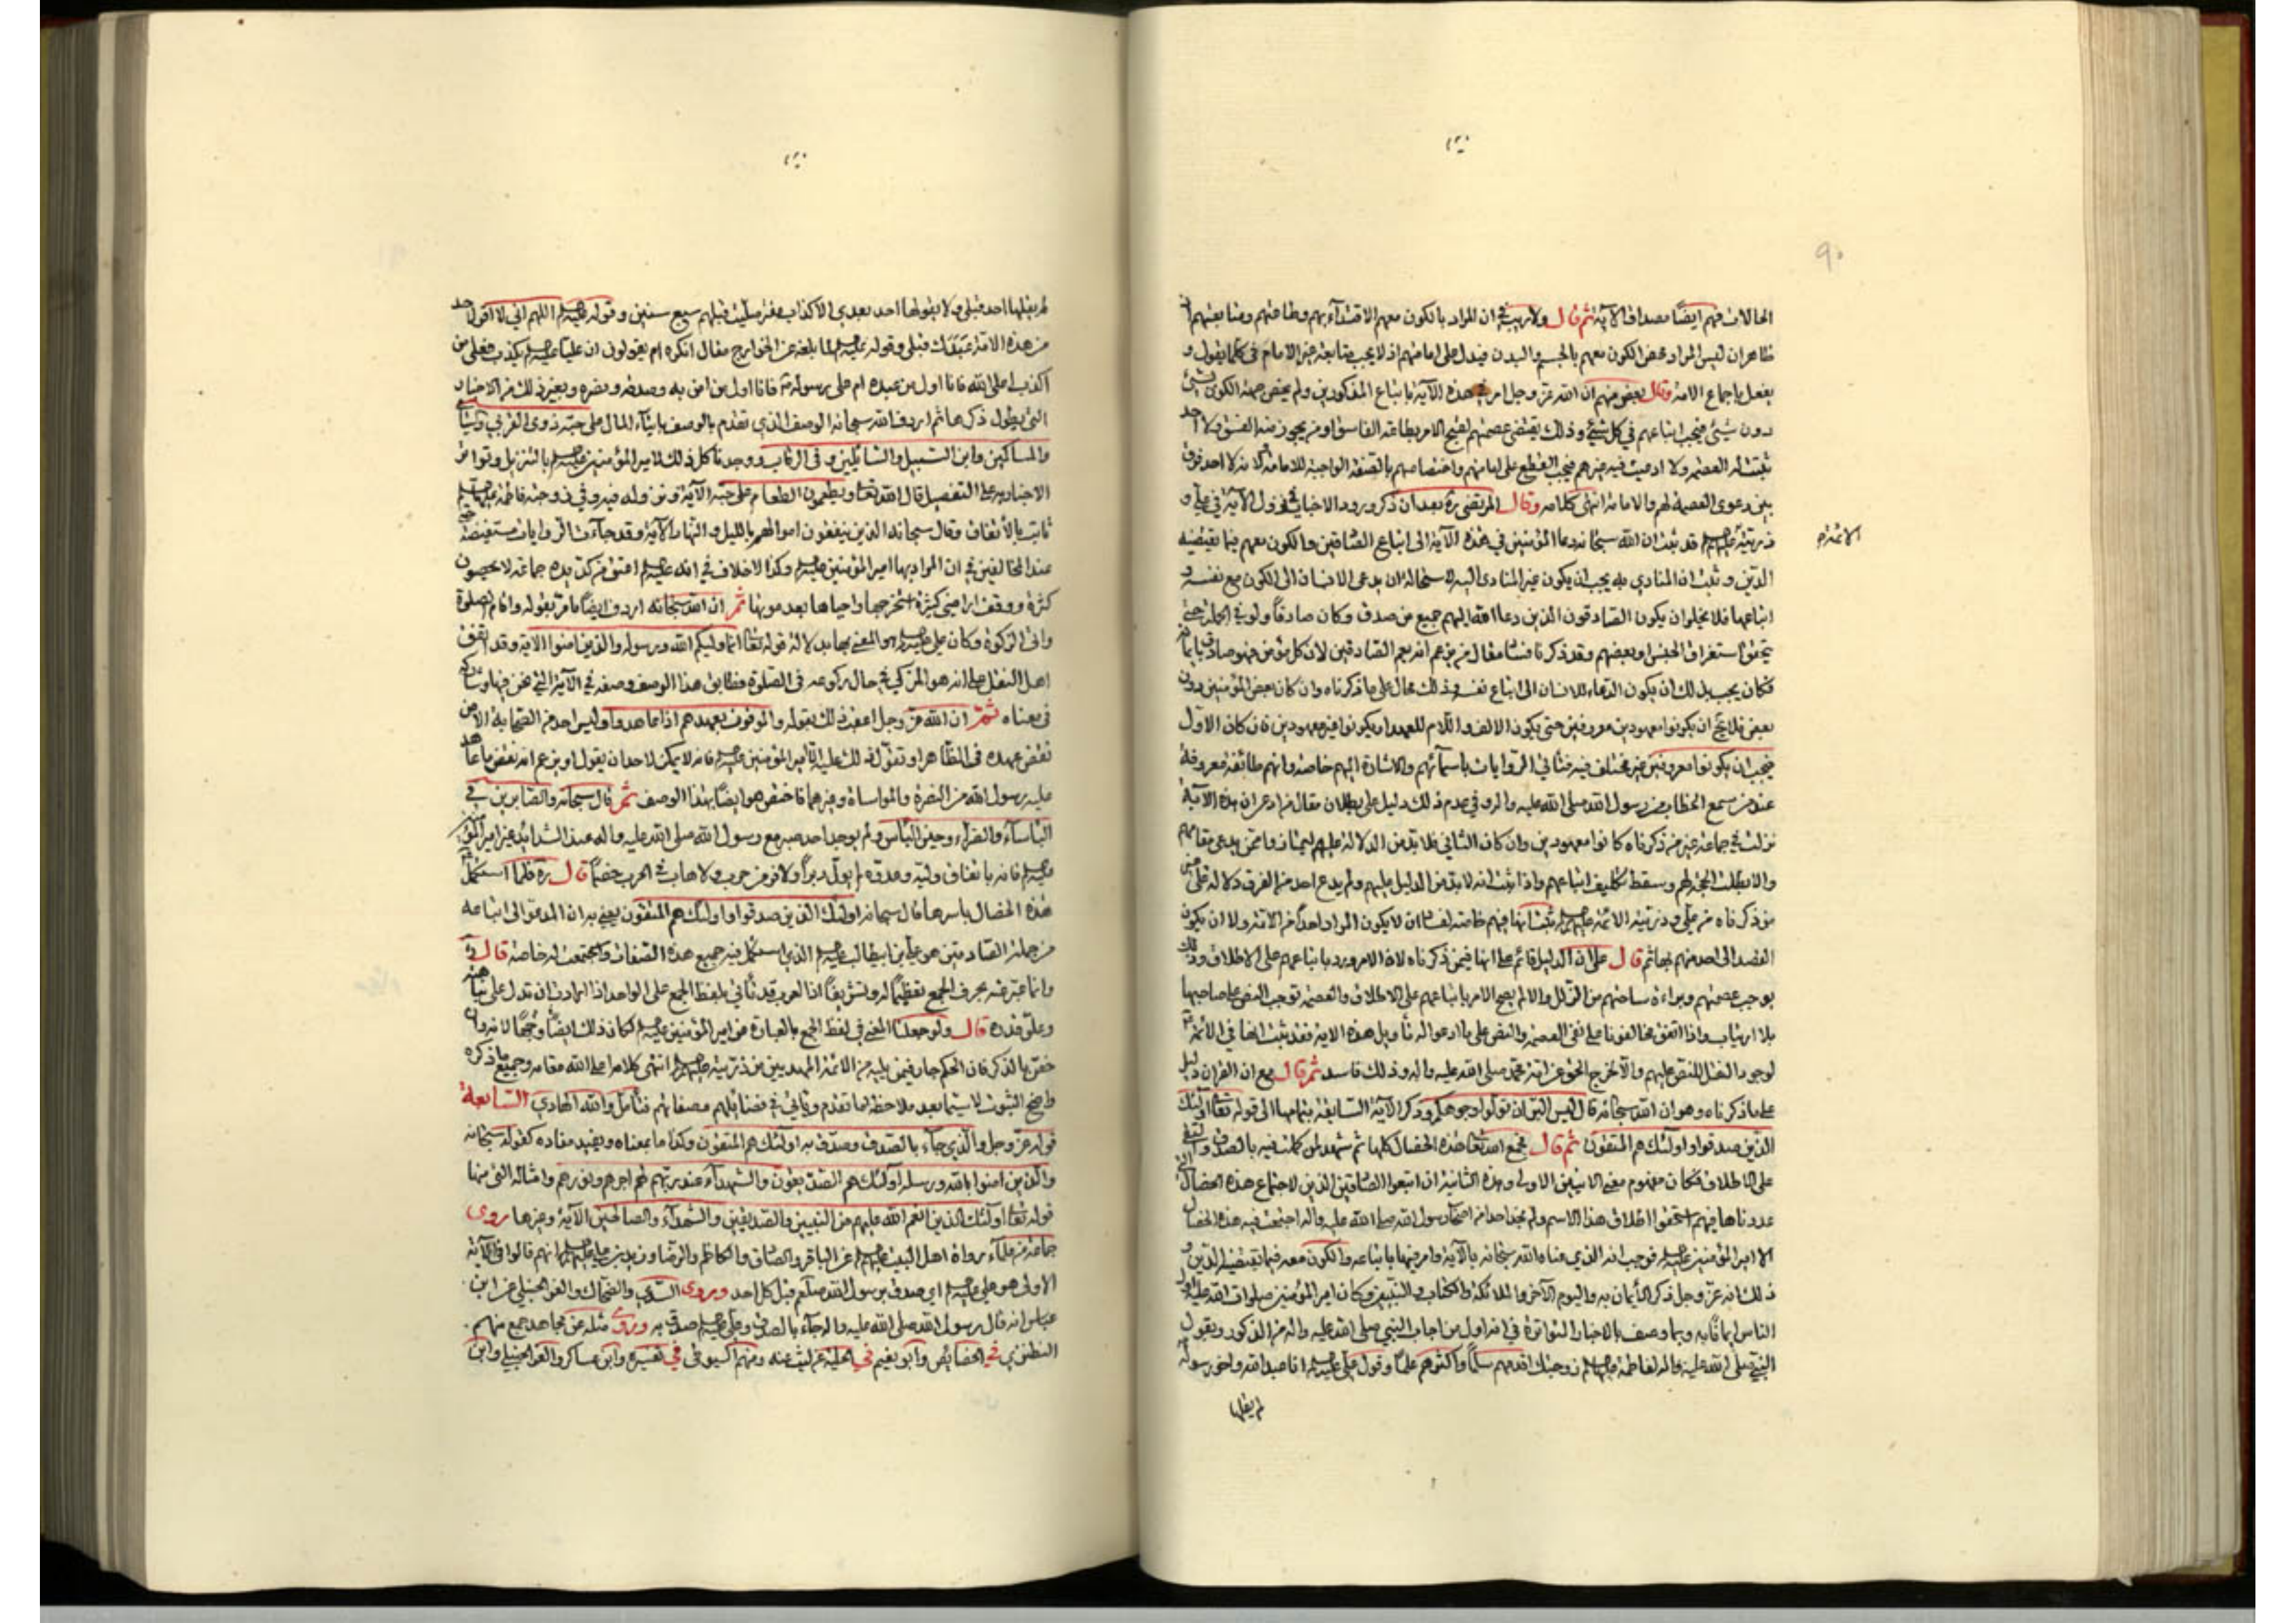 ٩٠
الحالات فهم ايضًا مصداق الآية ثم قال ولا ريب في ان المراد بالكون معهم الاقتداء بهم وطاعتهم ومتابعتهم اذ
ظاهر ان ليس المراد محض الكون معهم بالجسم والبدن فيدل على امامتهم اذ لا يجب متابعة غير الامام في كلما يقول و
يفعل باجماع الامة وقال بعض منهم ان الله عز وجل امر في هذه الآية باتباع المذكورين ولم يخص جهة الكون بشئ
دون شئ فيجب اتباعهم في كل شئ وذلك يقتضى عصمتهم لقبح الامر بطاعة الفاسق او من يجوز منه الفسق ولا احد
ثبتت له العصمة ولا ادعيت فيه غيرهم فيجب القطع على امامتهم واختصاصهم بالصفة الواجبة للامامة لانه لا احد فرق
بين دعوى العصمة لهم والامامة انتهى كلامه وقال المرتضى ره بعد ان ذكر ورود الاخبار في نزول الآية في علي و
ذريته قد ثبت ان الله سبحانه دعا المؤمنين في هذه الآية الى اتباع الصادقين والكون معهم فيما يقتضيه
الأئمة
الدين وثبت ان المنادى به يجب ان يكون غير المنادى اليه لاستحالة ان يدعى الانسان الى الكون مع نفسه و
اتباعها فلا يخلو ان يكون الصادقون الذين دعا الله اليهم جميع من صدق وكان صادقًا ولو في الجملة حتى
استغراق الجنس او بعضهم وقد ذكرنا فساد مقال من زعم انه يعم الصادقين لان كل مؤمن فهو صادق بايمانه
فكان يجب بذلك ان يكون الدعاء للانسان الى اتباع نفسه وذلك محال على ما ذكرناه وان كان بعض المؤمنين دون
بعض فلا يخ ان يكونوا معهودين معروفين حتى يكون الالف واللام للعهد او يكونوا غير معهودين فان كان الاول
فيجب ان يكونوا معروفين غير مختلف فيه فتأتي الروايات باسمائهم والاشارة اليهم خاصة وانهم طائفة معروفة
عند من سمع الخطاب من رسول الله صلى الله عليه واله وفي عدم ذلك دليل على بطلان مقال من ادعى ان هذه الآية
نزلت في جماعة غير من ذكرناه كانوا معهودين وان كان الثاني فلا بد من الدلالة عليهم ليمتازوا ممن يدعى مقامهم
والا بطلت الحجة لهم وسقط تكليف اتباعهم واذا ثبت انه لا بد من الدليل عليهم ولم يدع احد من الفرق دلالة على
من ذكرناه من علي وذريته الائمة ثبت انها فيهم خاصة لفساد ان لا يكون المراد واحدًا من الامة ولا ان يكون
القصد الى احد منهم بها ثم قال على ان الدليل قائم على انها فيمن ذكرناه لان الامر ورد باتباعهم على الاطلاق وذلك
يوجب عصمتهم وبراءة ساحتهم من الزلل والا لم يصح الامر باتباعهم على الاطلاق والعصمة توجب النص على صاحبها
بلا ارتياب واذا اتفق مخالفونا على نفى العصمة والنص على ما ادعوا له تأويل هذه الاية فقد ثبت انها في الائمة
لوجود النقل للنص عليهم والا لخرج الحق عن امة محمد صلى الله عليه واله وذلك فاسد ثم قال مع ان القران دليل
على ما ذكرناه وهو ان الله سبحانه قال ليس البر ان تولوا وجوهكم وذكر الآية السابقة بتمامها الى قوله تعالى اولئك
الذين صدقوا واولئك هم المتقون ثم قال فجمع الله تعالى هذه الخصال كلها ثم شهد لمن كملت فيه بالصدق والتقى
على الاطلاق فكان مفهوم معنى الايتين الاولى وهذه الثانية ان اتبعوا الصادقين الذين لاجتماع هذه الخصال التى
عددناها فيهم استحقوا اطلاق هذا الاسم ولم نجد احدا من اصحاب رسول الله صلى الله عليه واله اجتمعت فيه هذه الخصال
الا امير المؤمنين فوجب انه الذي عناه الله سبحانه بالآية وامر فيها باتباعه والكون معه فيما يقتضيه الدين و
ذلك انه عز وجل ذكر الأيمان به واليوم الآخر والملائكة والكتاب والنبيين وكان امير المؤمنين صلوات الله عليه اول
الناس ايمانًا به وبما وصف بالاخبار المتواترة في انه اول من اجاب النبي صلى الله عليه واله من الذكور وبقول
النبي صلى الله عليه واله لفاطمة زوجتك اقدمهم سلمًا واكثرهم علمًا وقول علي انا عبد الله واخو رسوله
لم يقلها
لم يقلها احد قبلي ولا يقولها احد بعدي الا كذاب مفتر صليت قبلهم سبع سنين وقوله اللهم اني لا اقول احد
من هذه الامة عبدك قبلى وقوله لما بلغه عن الخوارج مقال انكره ام يقولون ان عليًا يكذب فعلى من
اكذب اعلى الله فانا اول من عبده ام على رسوله فانا اول من امن به وصدقه ونصره وبغير ذلك من الاخبار
التى يطول ذكرها ثم اردف الله سبحانه الوصف الذي تقدم بالوصف بايتاء المال على حبه ذوى القربى واليتامى
والمساكين وابن السبيل والسائلين وفى الرقاب ووجدنا كل ذلك لامير المؤمنين بالتنزيل وتواتر
الاخبار به على التفصيل قال الله تعالى ويطعمون الطعام على حبه الآية ونزوله فيه وفي زوجته فاطمة
وقال سبحانه الذين ينفقون اموالهم بالليل والنهار الآية وقد جاءت الروايات مستفيضة حتى
عند المخالفين في ان المراد بها امير المؤمنين وكذا لا خلاف في انه اعتق من كد يده جماعة لا يحصون
كثرة ووقف اراضى كثيرة استخرجها واحياها بعد موتها ثم ان الله سبحانه اردف ايضًا ما مر بقوله واقام الصلوة
واتى الزكوة وكان علي هو المعنى بها بدلالة قوله تعالى انما وليكم الله ورسوله والذين امنوا الاية وقد اتفق
اهل النقل على انه هو المزكى في حال ركوعه فى الصلوة فطابق هذا الوصف وصفه في الآية التى نحن فيها وشاركه
فى معناه ثم ان الله عز وجل اعقب ذلك بقوله والموفون بعهدهم اذا عاهدوا وليس احد من الصحابة الا من
نقض عهده فى الظاهر او تقوّل ذلك عليه الا امير المؤمنين فانه لا يمكن لاحد ان يقول او يزعم انه نقض ما عاهد
عليه رسول الله من النصرة والمواساة وغيرهما فاختص هو ايضًا بهذا الوصف ثم قال سبحانه والصابرين في
البأساء والضراء وحين البأس ولم يوجد احد صبر مع رسول الله صلى الله عليه واله عند الشدائد غير امير المؤمنين
فانه باتفاق وليه وعدوه لم يول دبرًا ولا فر من حرب ولا هاب في الحرب خصمًا قال ره فلما استكمل
هذه الخصال باسرها قال سبحانه اولئك الذين صدقوا واولئك هم المتقون يعنى به ان المدعو الى اتباعه
من جملة الصادقين هو علي بن ابيطالب الذي استكمل فيه جميع هذه الصفات واجتمعت له خاصة قال ره
وانما عبر عنه بحرف الجمع تعظيمًا له وتشريفًا اذ العرب قد تأتي بلفظ الجمع على الواحد اذا ارادت ان تدل على نباهته
وعلو قدره قال ولو جعلنا المعنى في لفظ الجمع بالعبارة عن امير المؤمنين لكان ذلك ايضًا وجهًا لانه وان
خص بالذكر فان الحكم جار فيمن يليه من الائمة المهديين من ذريته انتهى كلامه اعلى الله مقامه وجميع ما ذكره
واضح الثبوت لا سيما بعد ملاحظة ما تقدم ويأتي في فضائلهم وصفاتهم فتأمل والله الهادي السابعة
قوله عز وجل والذي جاء بالصدق وصدق به اولئك هم المتقون وكذا ما بمعناه ويفيد مفاده كقوله سبحانه
والذين امنوا بالله ورسله اولئك هم الصديقون والشهداء عند ربهم لهم اجرهم ونورهم وامثاله التى منها
قوله تعالى اولئك الذين انعم الله عليهم من النبيين والصديقين والشهداء والصالحين الآية وغيرها روى
جماعة من علماء رواة اهل البيت عن الباقر والصادق والكاظم والرضا وزيد بن علي انهم قالوا فى الآية
الاولى هو علي اي صدق برسول الله صلعم قبل كل احد وروى السدي والضحاك والعز الحنبلي عن ابن
عباس انه قال رسول الله صلى الله عليه واله جاء بالصدق وعلي صدق به وروى مثله عن مجاهد جمع منهم
النطنزي في الخصائص وابو نعيم في الحلية عن ليث عنه ومنهم السيوطى في تفسيره وابن عساكر والعز الحنبلي وابن